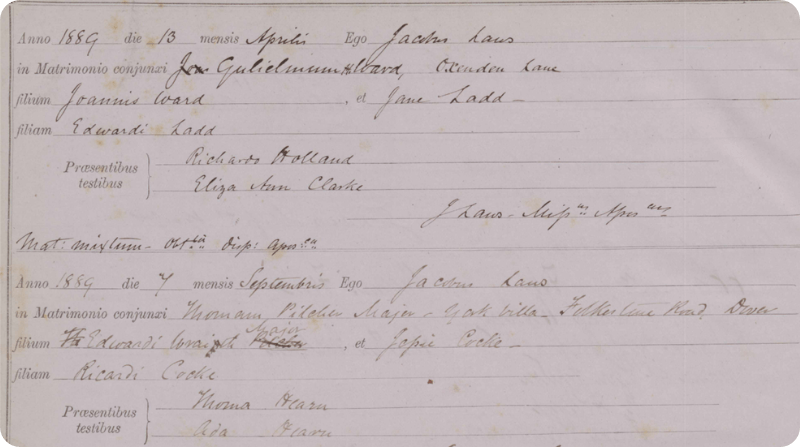 Anno 1889 die 13 mensis Aprilis Ego Jacobus Laws
in Matrimonio conjunxi Gulielmum H Ward, Oxenden Lane
filium Joannis Ward , et Jane Ladd -
filiam Edwardi Ladd
Præsentibus testibus
Richardo Holland
Eliza Ann Clarke
J Laws - Miss us Apos cus
Mat: mixtum - Obt ta Disp: apos ca
Anno 1889 die 7 mensis Septembris Ego Jacobus Laws
in Matrimonio conjunxi Thomam Pilcher Major - York Villa - Folkestone Road, Dover
filium Edwardi Wraight Major , et Jessie Cocke -
filiam Ricardi Cocke
Præsentibus testibus
Thoma Hearn
Ada Hearn